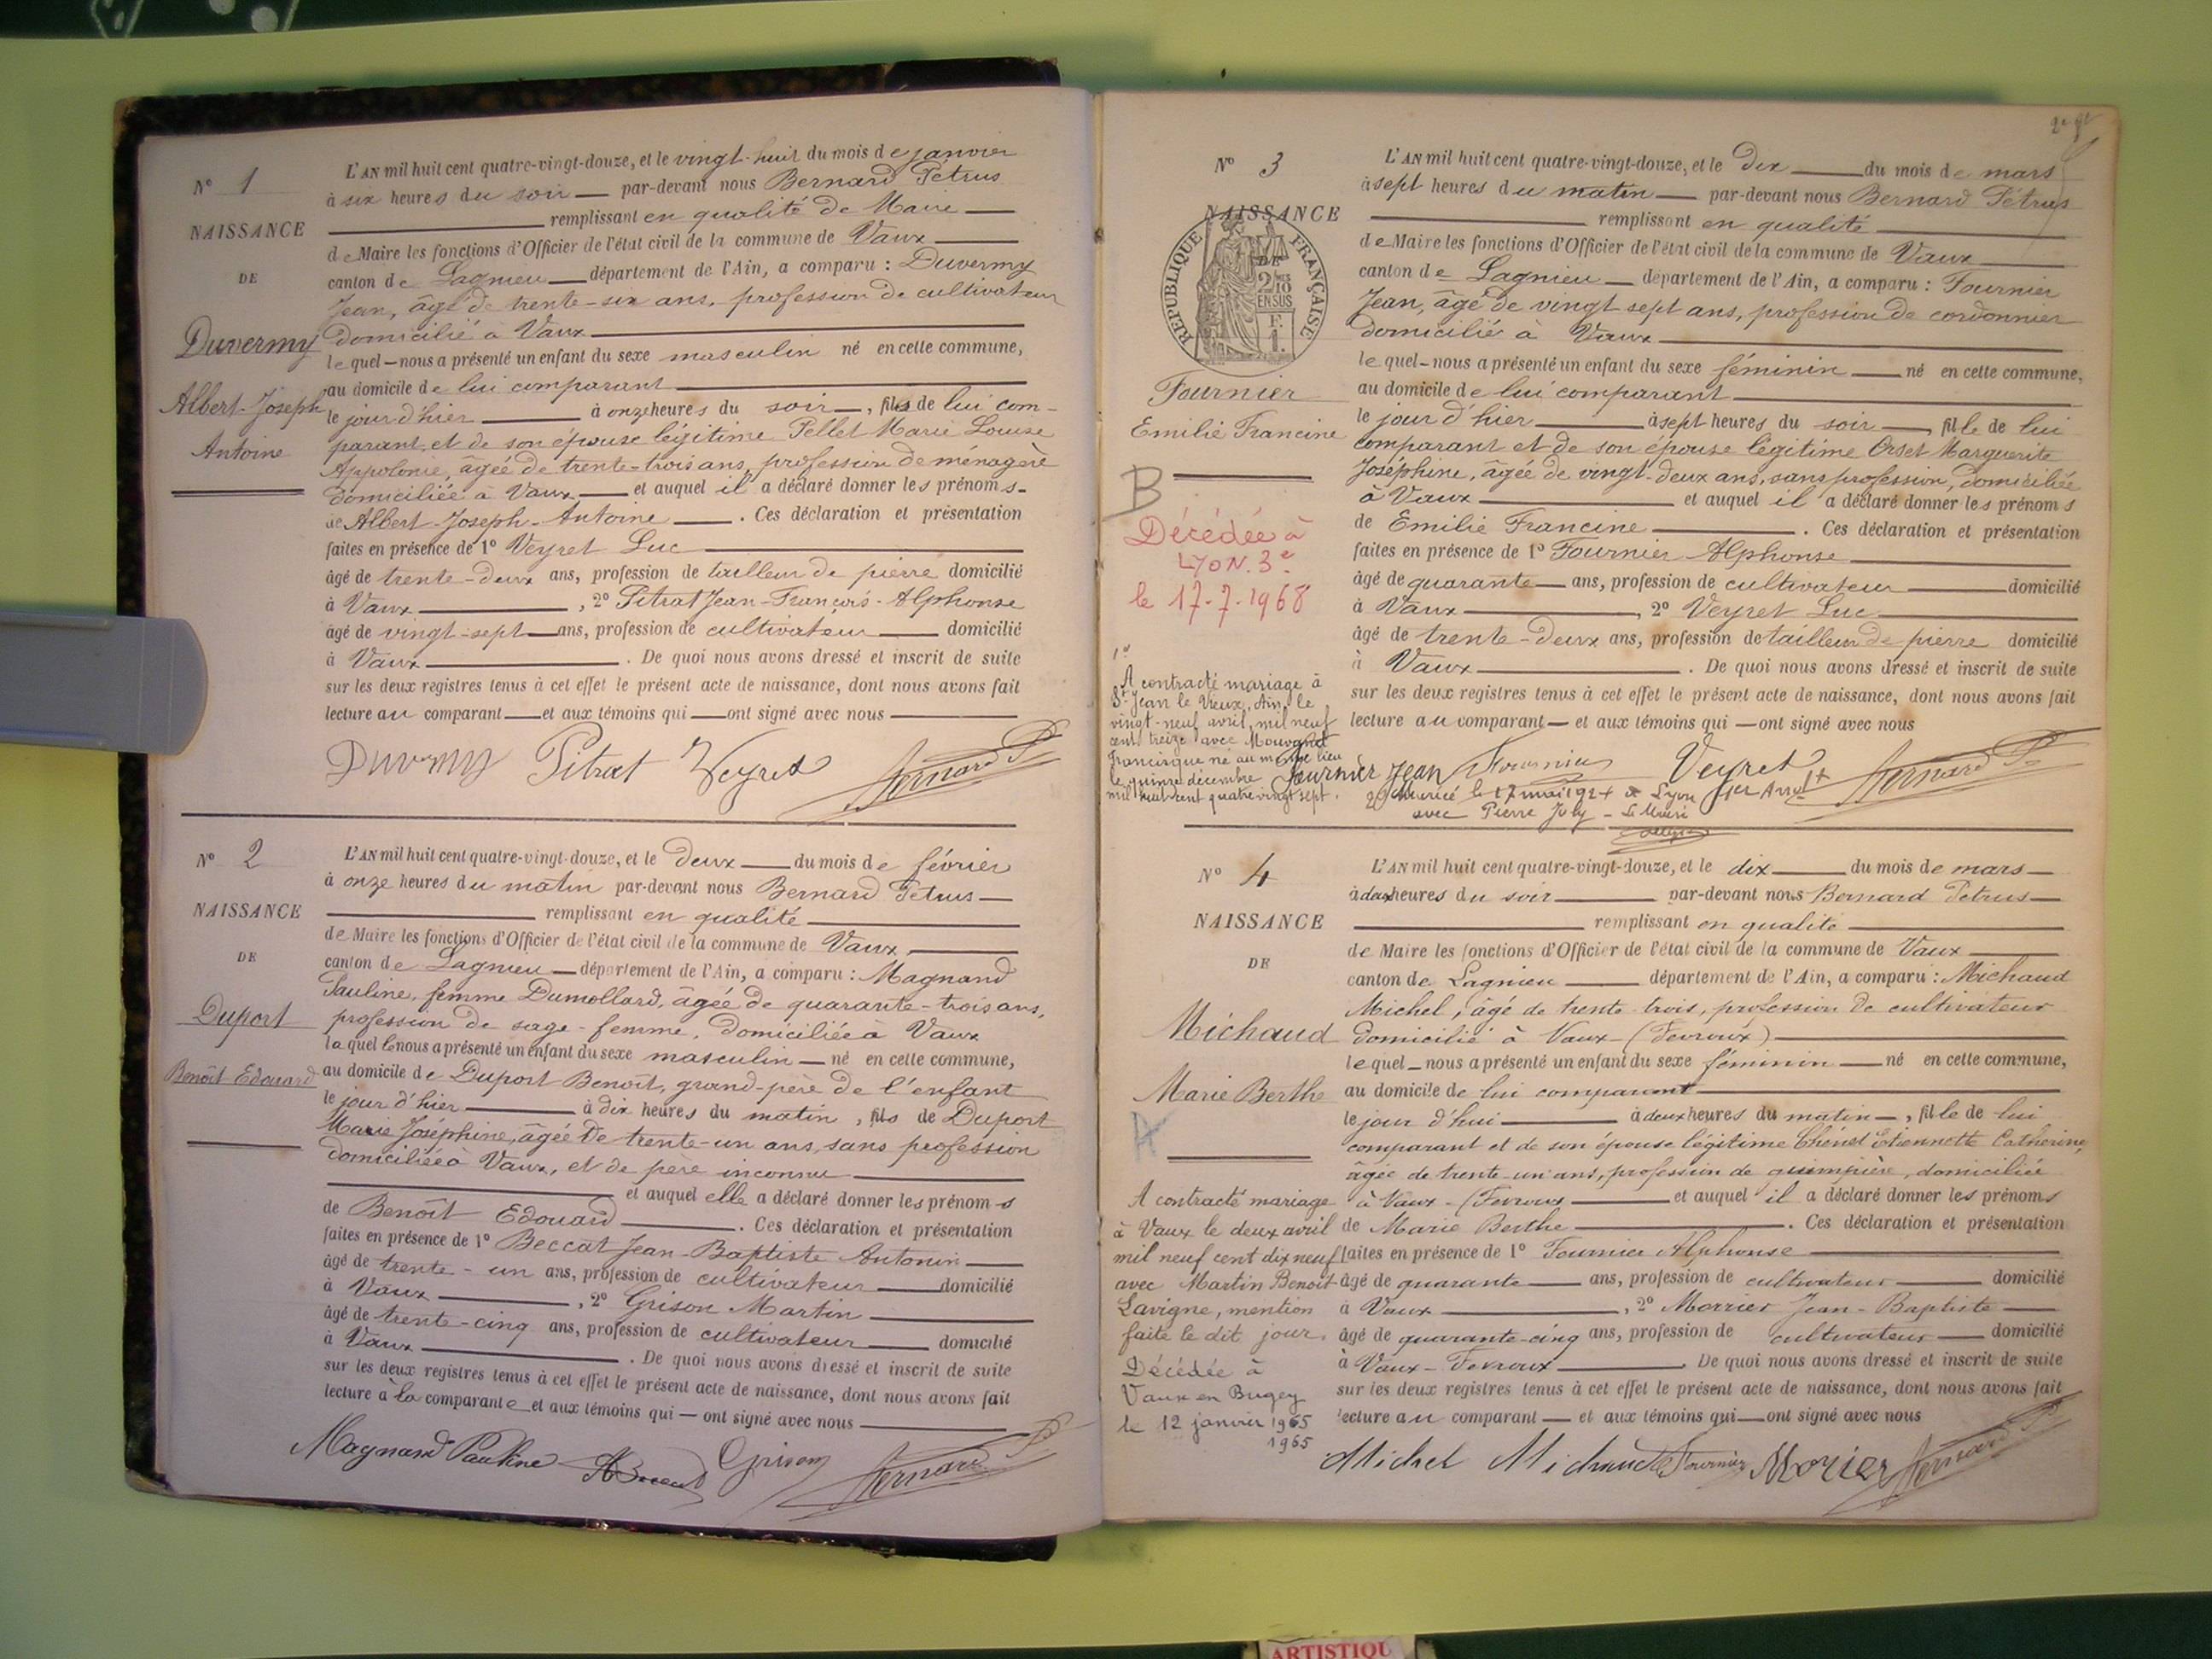 N° 1
NAISSANCE
DE
Duvermy
Albert-Joseph
Antoine
L'AN mil huit cent quatre-vingt-douze, et le vingt-huit du mois de janvier
à six heures du soir par-devant nous Bernard Pétrus
remplissant en qualité de Maire
de Maire les fonctions d'Officier de l'état civil de la commune de Vaux
canton de Lagnieu département de l'Ain, a comparu : Duvermy
Jean, âgé de trente-six ans, profession de cultivateur
domicilié à Vaux
lequel nous a présenté un enfant du sexe masculin né en cette commune,
au domicile de lui comparant
le jour d'hier à onze heures du soir, fils de lui com-
parant et de son épouse légitime Pellet Marie Louise
Appolonie, âgée de trente-trois ans, profession de ménagère
domiciliée à Vaux et auquel il a déclaré donner les prénoms
de Albert-Joseph-Antoine. Ces déclaration et présentation
faites en présence de 1° Veyret Luc
âgé de trente-deux ans, profession de tailleur de pierre domicilié
à Vaux, 2° Pitrat Jean-François-Alphonse
âgé de vingt-sept ans, profession de cultivateur domicilié
à Vaux. De quoi nous avons dressé et inscrit de suite
sur les deux registres tenus à cet effet le présent acte de naissance, dont nous avons fait
lecture au comparant et aux témoins qui ont signé avec nous
Duvermy Pitrat Veyret Bernard P
N° 2
NAISSANCE
DE
Duport
Benoît Edouard
L'AN mil huit cent quatre-vingt-douze, et le deux du mois de février
à onze heures du matin par-devant nous Bernard Pétrus
remplissant en qualité
de Maire les fonctions d'Officier de l'état civil de la commune de Vaux,
canton de Lagnieu département de l'Ain, a comparu : Magnand
Pauline, femme Dumollard, âgée de quarante-trois ans,
profession de sage-femme, domiciliée à Vaux
laquelle nous a présenté un enfant du sexe masculin né en cette commune,
au domicile de Duport Benoît, grand-père de l'enfant
le jour d'hier à dix heures du matin, fils de Duport
Marie Joséphine, âgée de trente-un ans, sans profession
domiciliée à Vaux, et de père inconnu
et auquel elle a déclaré donner les prénoms
de Benoît Edouard. Ces déclaration et présentation
faites en présence de 1° Beccat Jean-Baptiste Antonin
âgé de trente-un ans, profession de cultivateur domicilié
à Vaux, 2° Grison Martin
âgé de trente-cinq ans, profession de cultivateur domicilié
à Vaux. De quoi nous avons dressé et inscrit de suite
sur les deux registres tenus à cet effet le présent acte de naissance, dont nous avons fait
lecture à la comparante et aux témoins qui ont signé avec nous
Magnand Pauline Grison Bernard P
N° 3
NAISSANCE
RÉPUBLIQUE FRANÇAISE
2/10
EN SUS
F.
1.
Fournier
Emilie Francine
B
Décédée à
LYON. 3e
le 17-7-1968
1°
A contracté mariage à
St Jean le Vieux, Ain, le
vingt-neuf avril mil neuf
cent treize avec
Francisque né au même lieu
le quinze décembre
mil huit cent quatre vingt sept.
L'AN mil huit cent quatre-vingt-douze, et le dix du mois de mars
à sept heures du matin par-devant nous Bernard Pétrus
remplissant en qualité
de Maire les fonctions d'Officier de l'état civil de la commune de Vaux
canton de Lagnieu département de l'Ain, a comparu : Fournier
Jean, âgé de vingt sept ans, profession de cordonnier
domicilié à Vaux
lequel nous a présenté un enfant du sexe féminin né en cette commune,
au domicile de lui comparant
le jour d'hier à sept heures du soir, fille de lui
comparant et de son épouse légitime Orset Marguerite
Joséphine, âgée de vingt-deux ans, sans profession, domiciliée
à Vaux et auquel il a déclaré donner les prénoms
de Emilie Francine. Ces déclaration et présentation
faites en présence de 1° Fournier Alphonse
âgé de quarante ans, profession de cultivateur domicilié
à Vaux, 2° Veyret Luc
âgé de trente-deux ans, profession de tailleur de pierre domicilié
à Vaux. De quoi nous avons dressé et inscrit de suite
sur les deux registres tenus à cet effet le présent acte de naissance, dont nous avons fait
lecture au comparant et aux témoins qui ont signé avec nous
Fournier Jean Fournier Veyret Bernard P
2° Mariée le 17 mai 1924 à Lyon 1er Arrt
avec Pierre Joly
N° 4
NAISSANCE
DE
Michaud
Marie Berthe
A
A contracté mariage
à Vaux le deux avril
mil neuf cent dix neuf
avec Martin Benoit
Lavigne, mention
faite le dit jour.
Décédée à
Vaux en Bugey
le 12 janvier 1965
1965
L'AN mil huit cent quatre-vingt-douze, et le dix du mois de mars
à deux heures du soir par-devant nous Bernard Pétrus
remplissant en qualité
de Maire les fonctions d'Officier de l'état civil de la commune de Vaux
canton de Lagnieu département de l'Ain, a comparu : Michaud
Michel, âgé de trente-trois, profession de cultivateur
domicilié à Vaux (Févroux)
lequel nous a présenté un enfant du sexe féminin né en cette commune,
au domicile de lui comparant
le jour d'hui à deux heures du matin, fille de lui
comparant et de son épouse légitime Chénet Etiennette Catherine,
âgée de trente-un ans, profession de guimpière, domiciliée
à Vaux-(Févroux et auquel il a déclaré donner les prénoms
de Marie Berthe. Ces déclaration et présentation
faites en présence de 1° Fournier Alphonse
âgé de quarante ans, profession de cultivateur domicilié
à Vaux, 2° Morrier Jean-Baptiste
âgé de quarante-cinq ans, profession de cultivateur domicilié
à Vaux-Févroux. De quoi nous avons dressé et inscrit de suite
sur les deux registres tenus à cet effet le présent acte de naissance, dont nous avons fait
lecture au comparant et aux témoins qui ont signé avec nous
Michel Michaud Fournier Morier Bernard P
ARTISTIQU